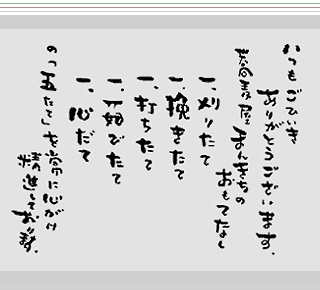 いつもごひいき
ありがとうございます。
蕎麦屋まんきちの
おもてなし
一、刈りたて
一、挽きたて
一、打ちたて
一、茹でたて
一、心だて
の「五たて」を常に心がけ
精進しております。